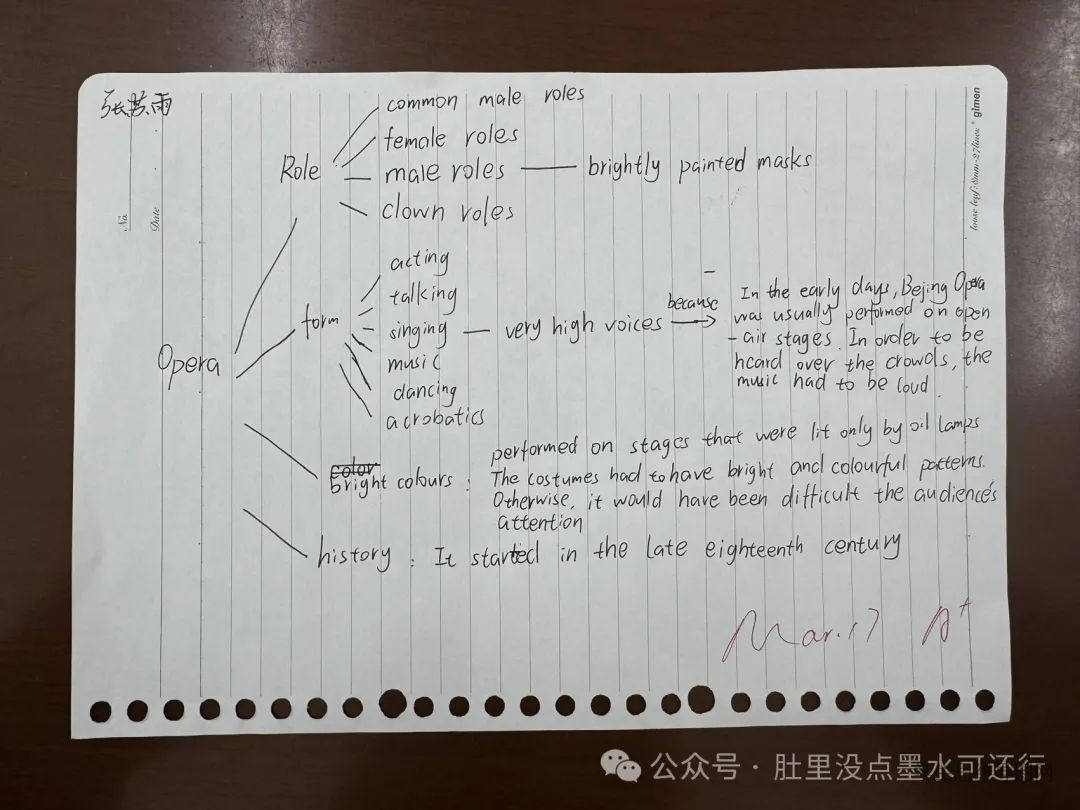 张芸雨
No.
Date
loose leaf: 8mm×27lines * glmen
Opera
Role
common male roles
female roles
male roles — brightly painted masks
clown roles
form
acting
talking
singing — very high voices
because
In the early days, Bejing Opera
was usually performed on open
-air stages. In order to be
heard over the crowds, the
music had to be loud.
music
dancing
acrobatics
color
bright colours:
performed on stages that were lit only by oil lamps
The costumes had to have bright and colourful patterns.
Otherwise, it would have been difficult the audience's
attention
history: It started in the late eighteenth century
Mar.17 A+
公众号·肚里没点墨水可还行